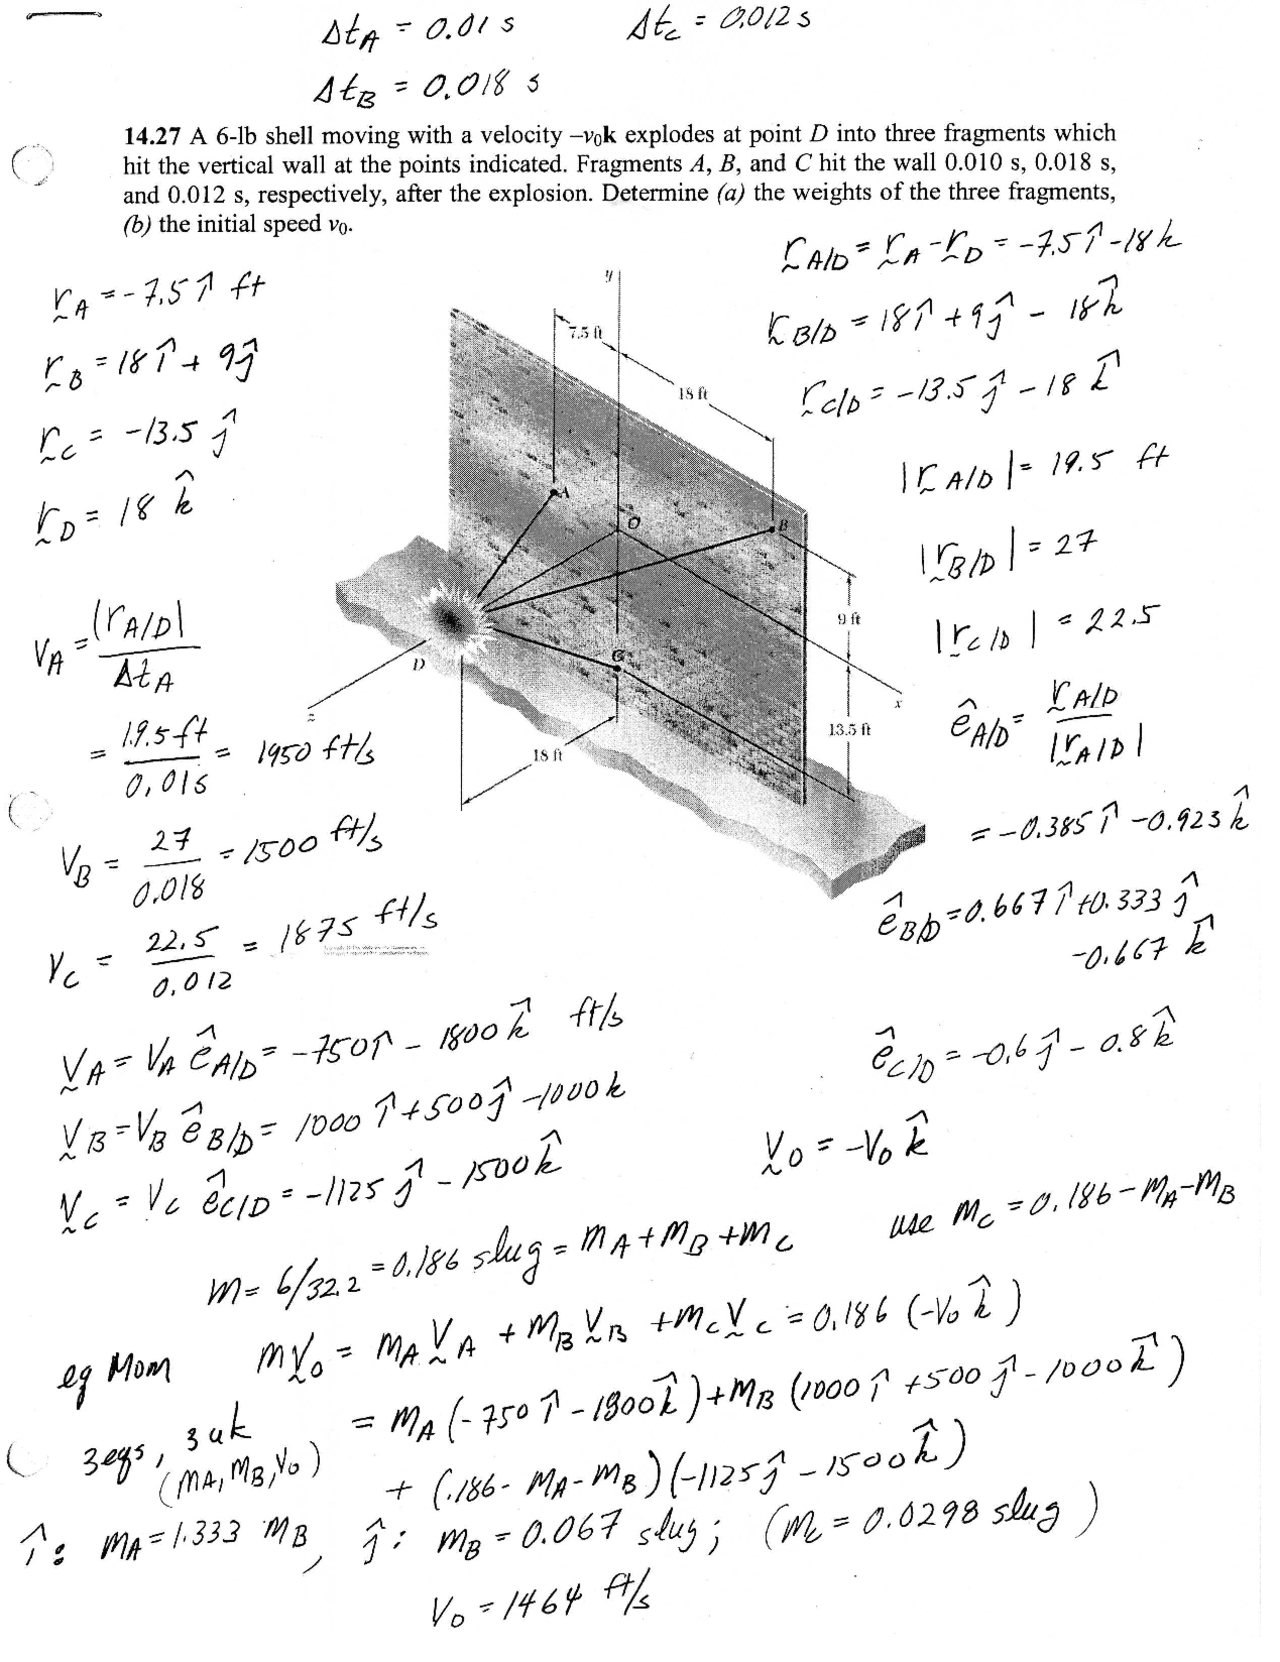 Δt_A = 0.01 s    Δt_C = 0.012 s
Δt_B = 0.018 s
14.27 A 6-lb shell moving with a velocity –v₀k explodes at point D into three fragments which
hit the vertical wall at the points indicated. Fragments A, B, and C hit the wall 0.010 s, 0.018 s,
and 0.012 s, respectively, after the explosion. Determine (a) the weights of the three fragments,
(b) the initial speed v₀.
r_A = -7.5 î ft
r_B = 18 î + 9 ĵ
r_C = -13.5 ĵ
r_D = 18 k̂
r_A/D = r_A - r_D = -7.5 î - 18 k
r_B/D = 18 î + 9 ĵ - 18 k̂
r_C/D = -13.5 ĵ - 18 k̂
|r_A/D| = 19.5 ft
|r_B/D| = 27
|r_C/D| = 22.5
y
7.5 ft
18 ft
A
O
B
9 ft
C
D
x
z
13.5 ft
18 ft
V_A = |r_A/D| / Δt_A
= 19.5 ft / 0.01 s = 1950 ft/s
V_B = 27 / 0.018 = 1500 ft/s
V_C = 22.5 / 0.012 = 1875 ft/s
ê_A/D = r_A/D / |r_A/D|
= -0.385 î - 0.923 k̂
ê_B/D = 0.667 î + 0.333 ĵ
-0.667 k̂
ê_C/D = -0.6 ĵ - 0.8 k̂
V_A = V_A ê_A/D = -750 î - 1800 k̂ ft/s
V_B = V_B ê_B/D = 1000 î + 500 ĵ - 1000 k
V_C = V_C ê_C/D = -1125 ĵ - 1500 k̂
V_0 = -V_0 k̂
m = 6/32.2 = 0.186 slug = m_A + m_B + m_C    use m_C = 0.186 - m_A - m_B
eq Mom    m V_0 = m_A V_A + m_B V_B + m_C V_C = 0.186 (-V_0 k̂)
= m_A (-750 î - 1800 k̂) + m_B (1000 î + 500 ĵ - 1000 k̂)
3 eqs, 3 uk
(m_A, m_B, V_0)    + (.186 - m_A - m_B)(-1125 ĵ - 1500 k̂)
î: m_A = 1.333 m_B, ĵ: m_B = 0.067 slug; (m_C = 0.0298 slug)
V_0 = 1464 ft/s